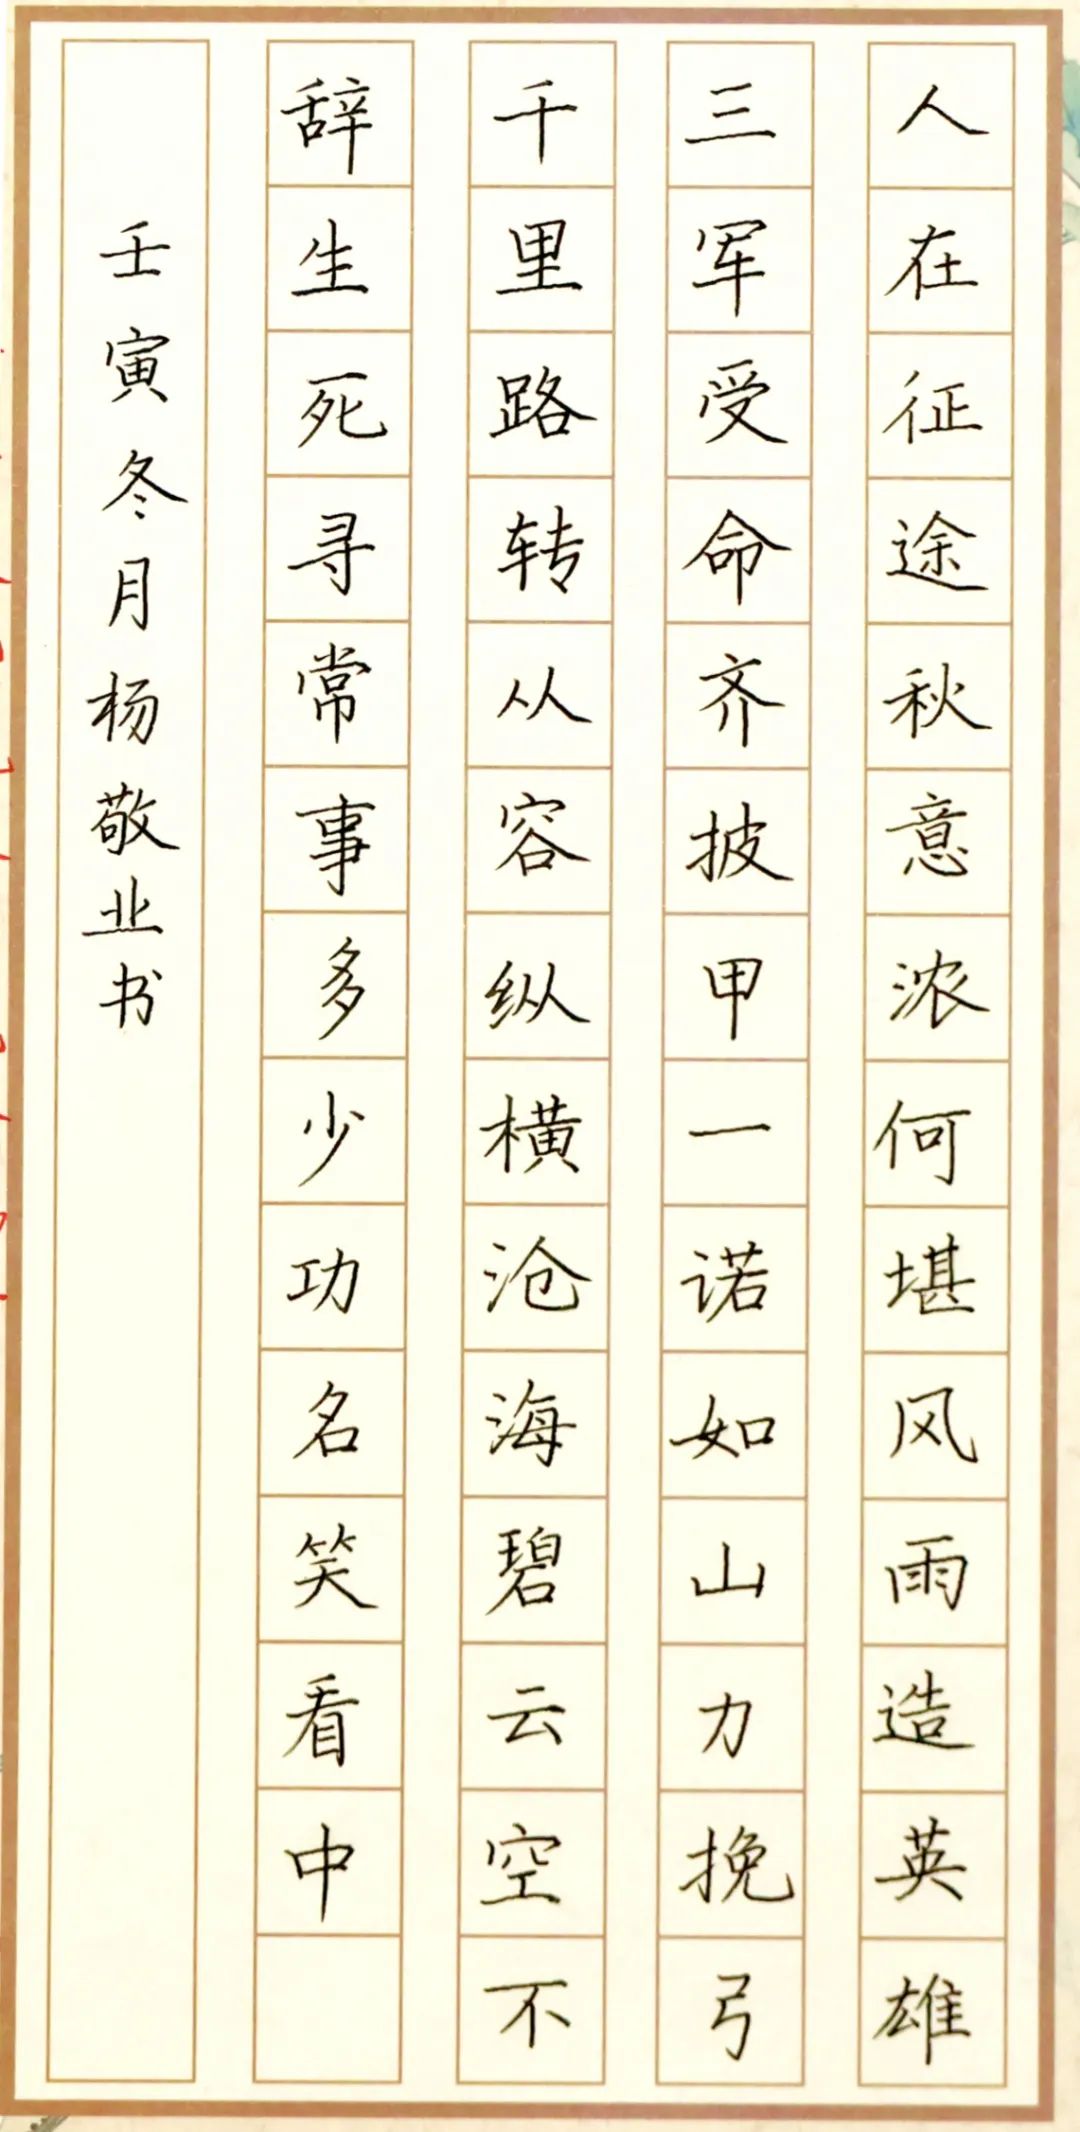 人在征途秋意浓何堪风雨造英雄
三军受命齐披甲一诺如山力挽弓
千里路转从容纵横沧海碧云空不
辞生死寻常事多少功名笑看中
壬寅冬月杨敬业书